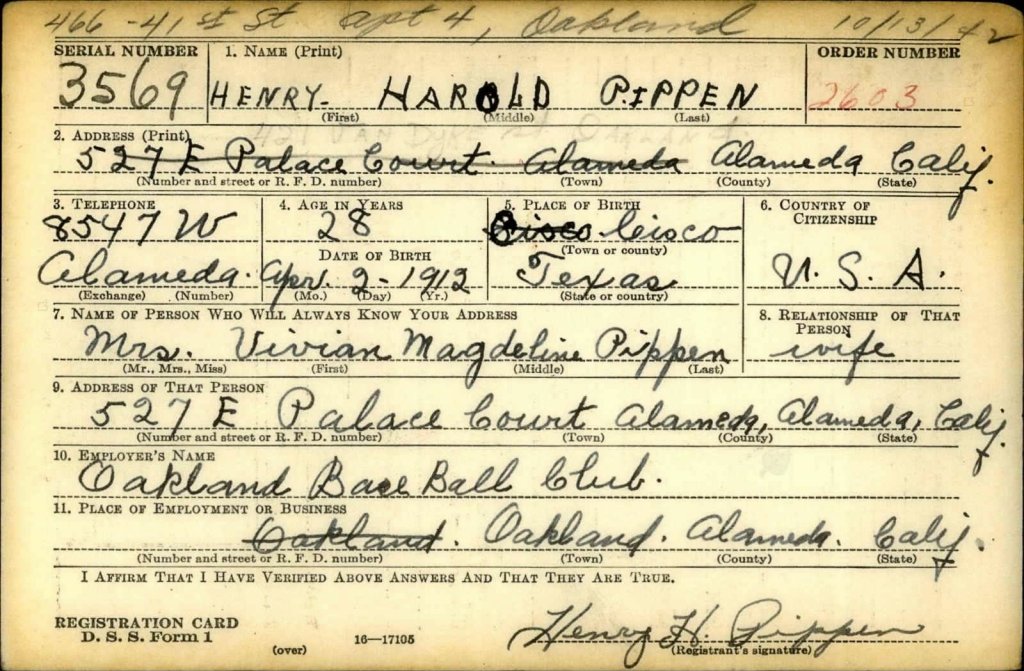 466 - 41st St Apt 4, Oakland 10/13/42
SERIAL NUMBER 1. NAME (Print) ORDER NUMBER
3569 HENRY- HAROLD PIPPEN 2603
(First) (Middle) (Last)
2. ADDRESS (Print)
527 E Palace Court. Alameda Alameda Calif.
(Number and street or R. F. D. number) (Town) (County) (State)
3. TELEPHONE 4. AGE IN YEARS 5. PLACE OF BIRTH 6. COUNTRY OF CITIZENSHIP
8547 W 28 Cisco Cisco
DATE OF BIRTH (Town or county)
Alameda. Apr. 2-1912 Texas U. S. A.
(Exchange) (Number) (Mo.) (Day) (Yr.) (State or country)
7. NAME OF PERSON WHO WILL ALWAYS KNOW YOUR ADDRESS 8. RELATIONSHIP OF THAT PERSON
Mrs. Vivian Magdeline Pippen wife
(Mr., Mrs., Miss) (First) (Middle) (Last)
9. ADDRESS OF THAT PERSON
527 E Palace Court Alameda, Alameda, Calif.
(Number and street or R. F. D. number) (Town) (County) (State)
10. EMPLOYER'S NAME
Oakland Base Ball Club.
11. PLACE OF EMPLOYMENT OR BUSINESS
Oakland. Oakland. Alameda. Calif.
(Number and street or R. F. D. number) (Town) (County) (State)
I AFFIRM THAT I HAVE VERIFIED ABOVE ANSWERS AND THAT THEY ARE TRUE.
REGISTRATION CARD
D. S. S. Form 1 16—17105 Henry H. Pippen
(over) (Registrant's signature)